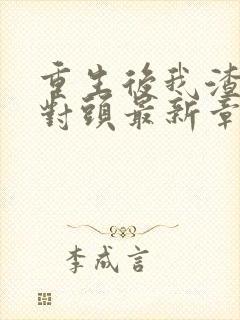 重生後我渣
對頭最新章
李成言